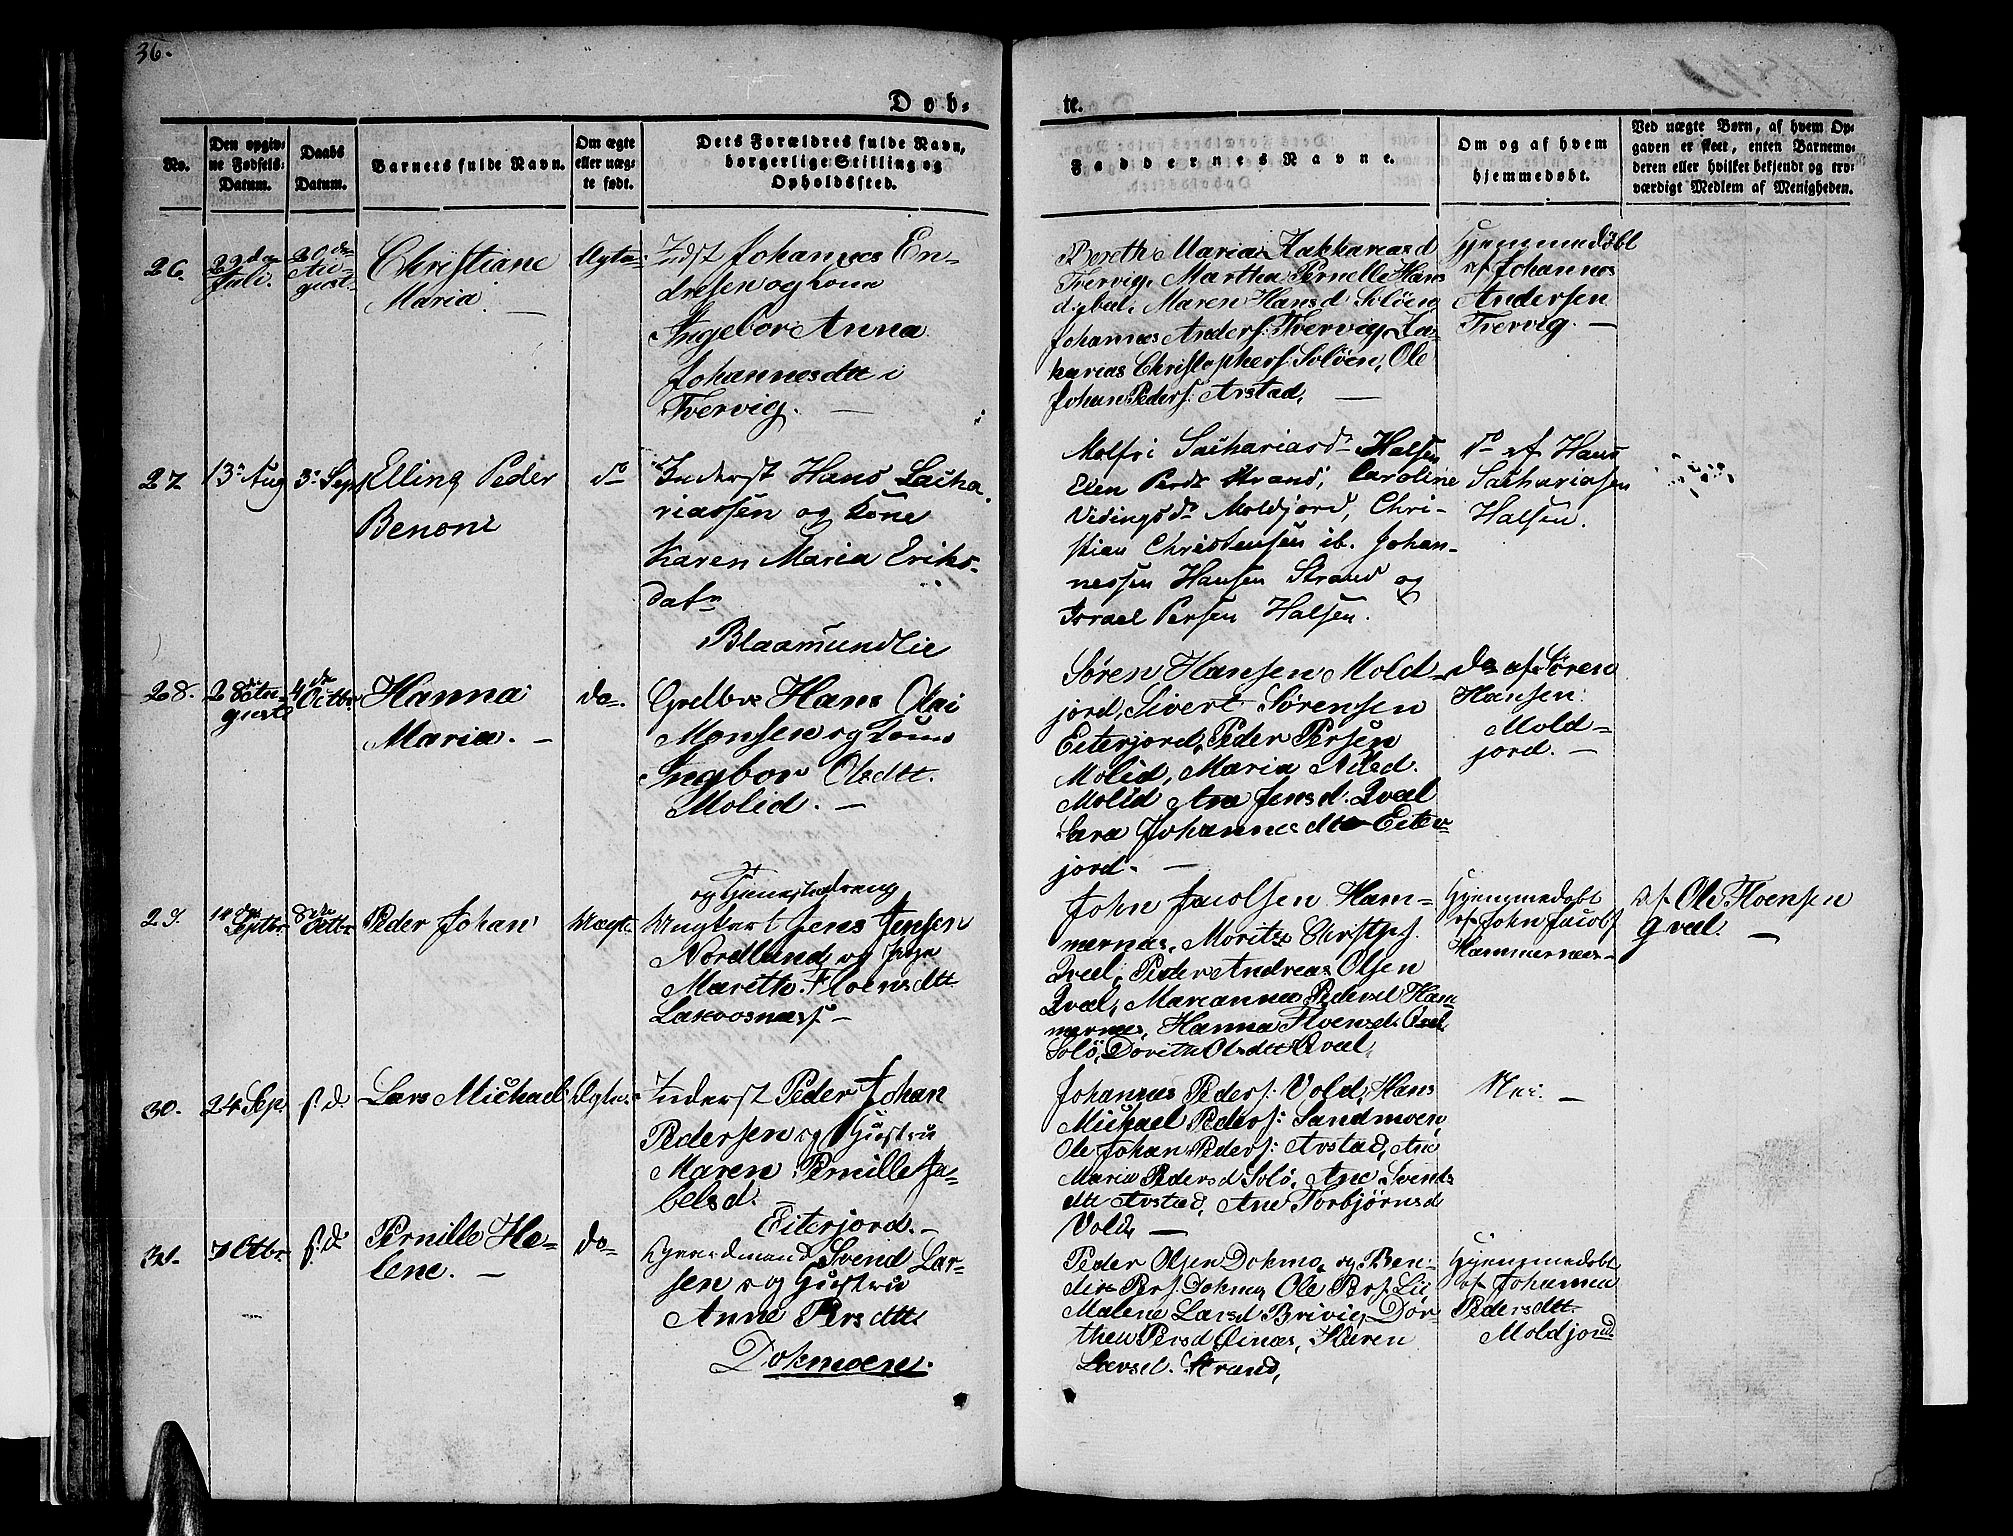 36.
Døb-
te.
No.
Den opgiv-
ne Fødsels-
Datum.
Daabs
Datum.
Barnets fulde Navn.
Om ægte
eller uæg-
te født.
Dets Forældres fulde Navn,
borgerlige Stilling og
Opholdssted.
Faddernes Navne.
Om og af hvem
hjemmedøbt.
Ved uægte Børn, af hvem Op-
gaven er skeet, enten Barnemo-
deren eller hvilket bekjendt og tro-
værdigt Medlem af Menigheden.
26.
22de
Juli.
20de
Au-
gust
Christiane
Maria. —
Ægte.
Indst Johannes En-
dresen og Kone
Ingebor Anna
Johannesdtt i
Tvervig. —
Bereth Maria Zakkariasd
Tvervig, Martha Pernelle Hans
Maren Hansd Soløen
Johannes Anders: Tvervig, Za-
karias Christophers: Soløen, Ole
Johan Peders: Arstad, —
Hjemmedøbt
af Johannes
Andersen
Tvervig. —
27
13: Aug
3: Sep
Elling Peder
Benoni
do
Inderst Hans Zacha-
riassen og Kone
Karen Maria Eriks-
datr
Blaamundlie
Molfri Sachariasdr Halsen
Elen Pedr Strand, Caroline
Vidingsdr Moldjord, Chri-
stian Christensen ib. Johan-
nessen Hansen Strand og
Israel Persen Halsen.
do af Hans
Sachariasen
Halsen.
28.
28de Au-
gust
4de
Octbr
Hanna
Maria. —
do.
Hans Olai
Monsen og Kone
Ingbor Olsdtt.
Molid. —
Søren Hansen Mold-
jord, Sivert Sørensen
Eiterjord, Peder Persen
Molid, Maria Nilsd.
Molid Ane Jensd. Qvæl
Sara Johannesdtt Eiter-
jord. —
do af Søren
Hansen
Mold-
jord. —
29.
Septbr
8de
Octbr
Peder Johan
Uægte.
og Tjenestedreng
Ungkert Jens Jensen
Nordlund og Pige
Mareth Floensdtt
John Jacobsen Ham-
mernæs, Moritz
Qvæl, Peder Andreas Olsen
Qvæl, Marianna Pedersd Ham
mernæs, Hanna Floensd.
Solö, Dorethe Olsdtt Qvæl,
Hjemmedøbt
af John Jacobs.
Hammernæs—
af Ole Floensen
Qvæl. —
30.
24 Sep.
s. d.
Lars Michael
Ægte.
Inderst Peder Johan
Pedersen og Hustru
Maren Pernille Ja-
belsd.
Eiterjord. —
Johannes Peders: Vold, Hans
Michael Peders: Sandmoen,
Ole Johan Peders: Arstad, Ane
Maria Pedersd Solö, Ane Svends
dtt Arstad, Ane Torbjørnsd
Vold, —
Nei. —
31.
7 Octbr.
s. d.
Pernille He-
lene. —
do—
Gaardmand Svend Lar-
sen og Hustru
Anne Persdtt
Dokmoen.
Peder Olsen Dokmo, og Ben-
Pers Dokmo Ole Pers. Lie
Malene Larsd Brivig, Dor-
thea Persd Øinæs, Karen
Larsd. Strand,
Hjemmedøbt
af Johanna
Pedersdtt.
Moldjord